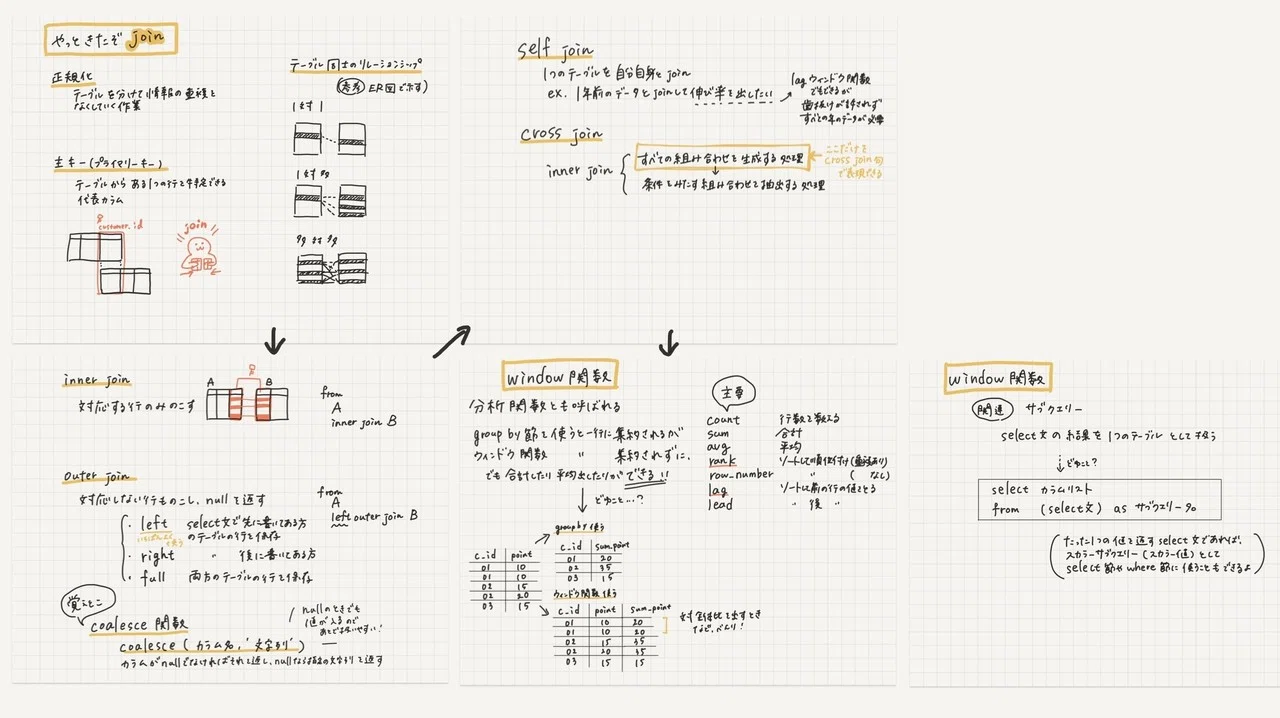 やっときたぞ join
正規化
テーブルを分けて情報の重複を
なくしていく作業
主キー(プライマリーキー)
テーブルから ある1つの行を特定できる
代表カラム
customer_id
join
テーブル同士のリレーションシップ
参考 ER図で示す)
1対1
1対多
多対多
inner join
対応する行のみのこす
A
B
from
A
inner join B
outer join
対応しない行ものこし、nullを返す
from
A
left outer join B
・left select文で先に書いてある方
のテーブルの行を保存
いちばんよく
使う
・right 〃 後に書いてある方
・full 両方のテーブルの行を保存
覚えとこ
coalesce 関数
nullのときでも
coalesce(カラム名, '文字列')
カラムがnullでなければそれを返し、nullなら指定の文字列を返す
self join
1つのテーブルを自分自身とjoin
ex. 1年前のデータとjoinして伸び率を出したい
lagウィンドウ関数
でもできるが
歯抜けが許されず
すべての年のデータが必要
cross join
inner join
すべての組み合わせを生成する処理
条件をみたす組み合わせを抽出する処理
ここだけを
cross join句
で表現できる
window 関数
分析関数とも呼ばれる
group by 節を使うと一行に集約されるが
ウィンドウ関数 〃 集約されずに、
でも合計したり平均出したりができる!!
どゆこと…?
主要
count 行数を数える
sum 合計
avg 平均
rank ソートして順位付け(重複あり)
row_number 〃 ( なし)
lag ソートして前の行の値をとる
lead 〃 後 〃
group by 使う
c_id point
01 10
01 10
02 15
02 20
03 15
c_id sum_point
01 20
02 35
03 15
ウィンドウ関数 使う
c_id point sum_point
01 10 20
01 10 20
02 15 35
02 20 35
03 15 15
対全体比を出すとき
など、べんり!
window 関数
関連 サブクエリー
select文の結果を1つのテーブルとして扱う
どゆこと?
select カラムリスト
from (select文) as サブクエリー名
(たった1つの値を返すselect文であれば、
スカラーサブクエリー(スカラー値)として
select 節やwhere 節に使うこともできるよ)